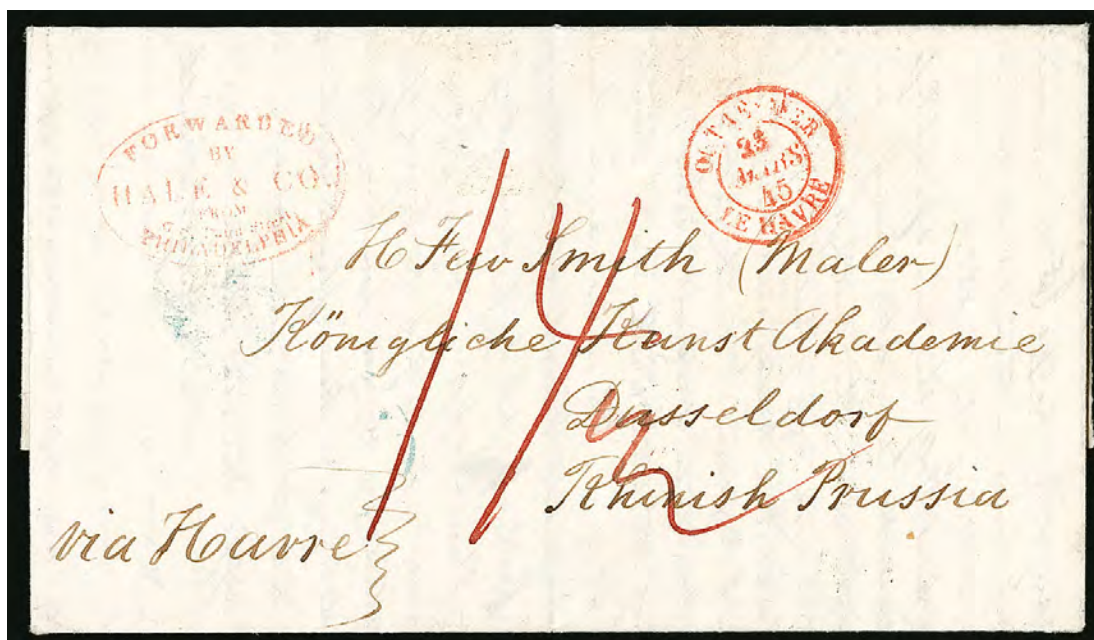 FORWARDED
BY
HALE & CO.
FROM
PHILADELPHIA
OUTRE-MER
23
MARS
45
LE HAVRE
H Few Smith (Maler)
Königliche Kunst Akademie
Dusseldorf
Rhinish Prussia
via Havre